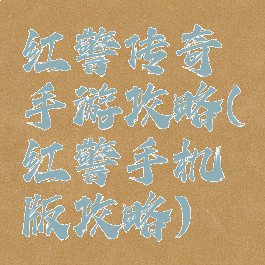 红警传奇
手游攻略(
红警手机
版攻略)